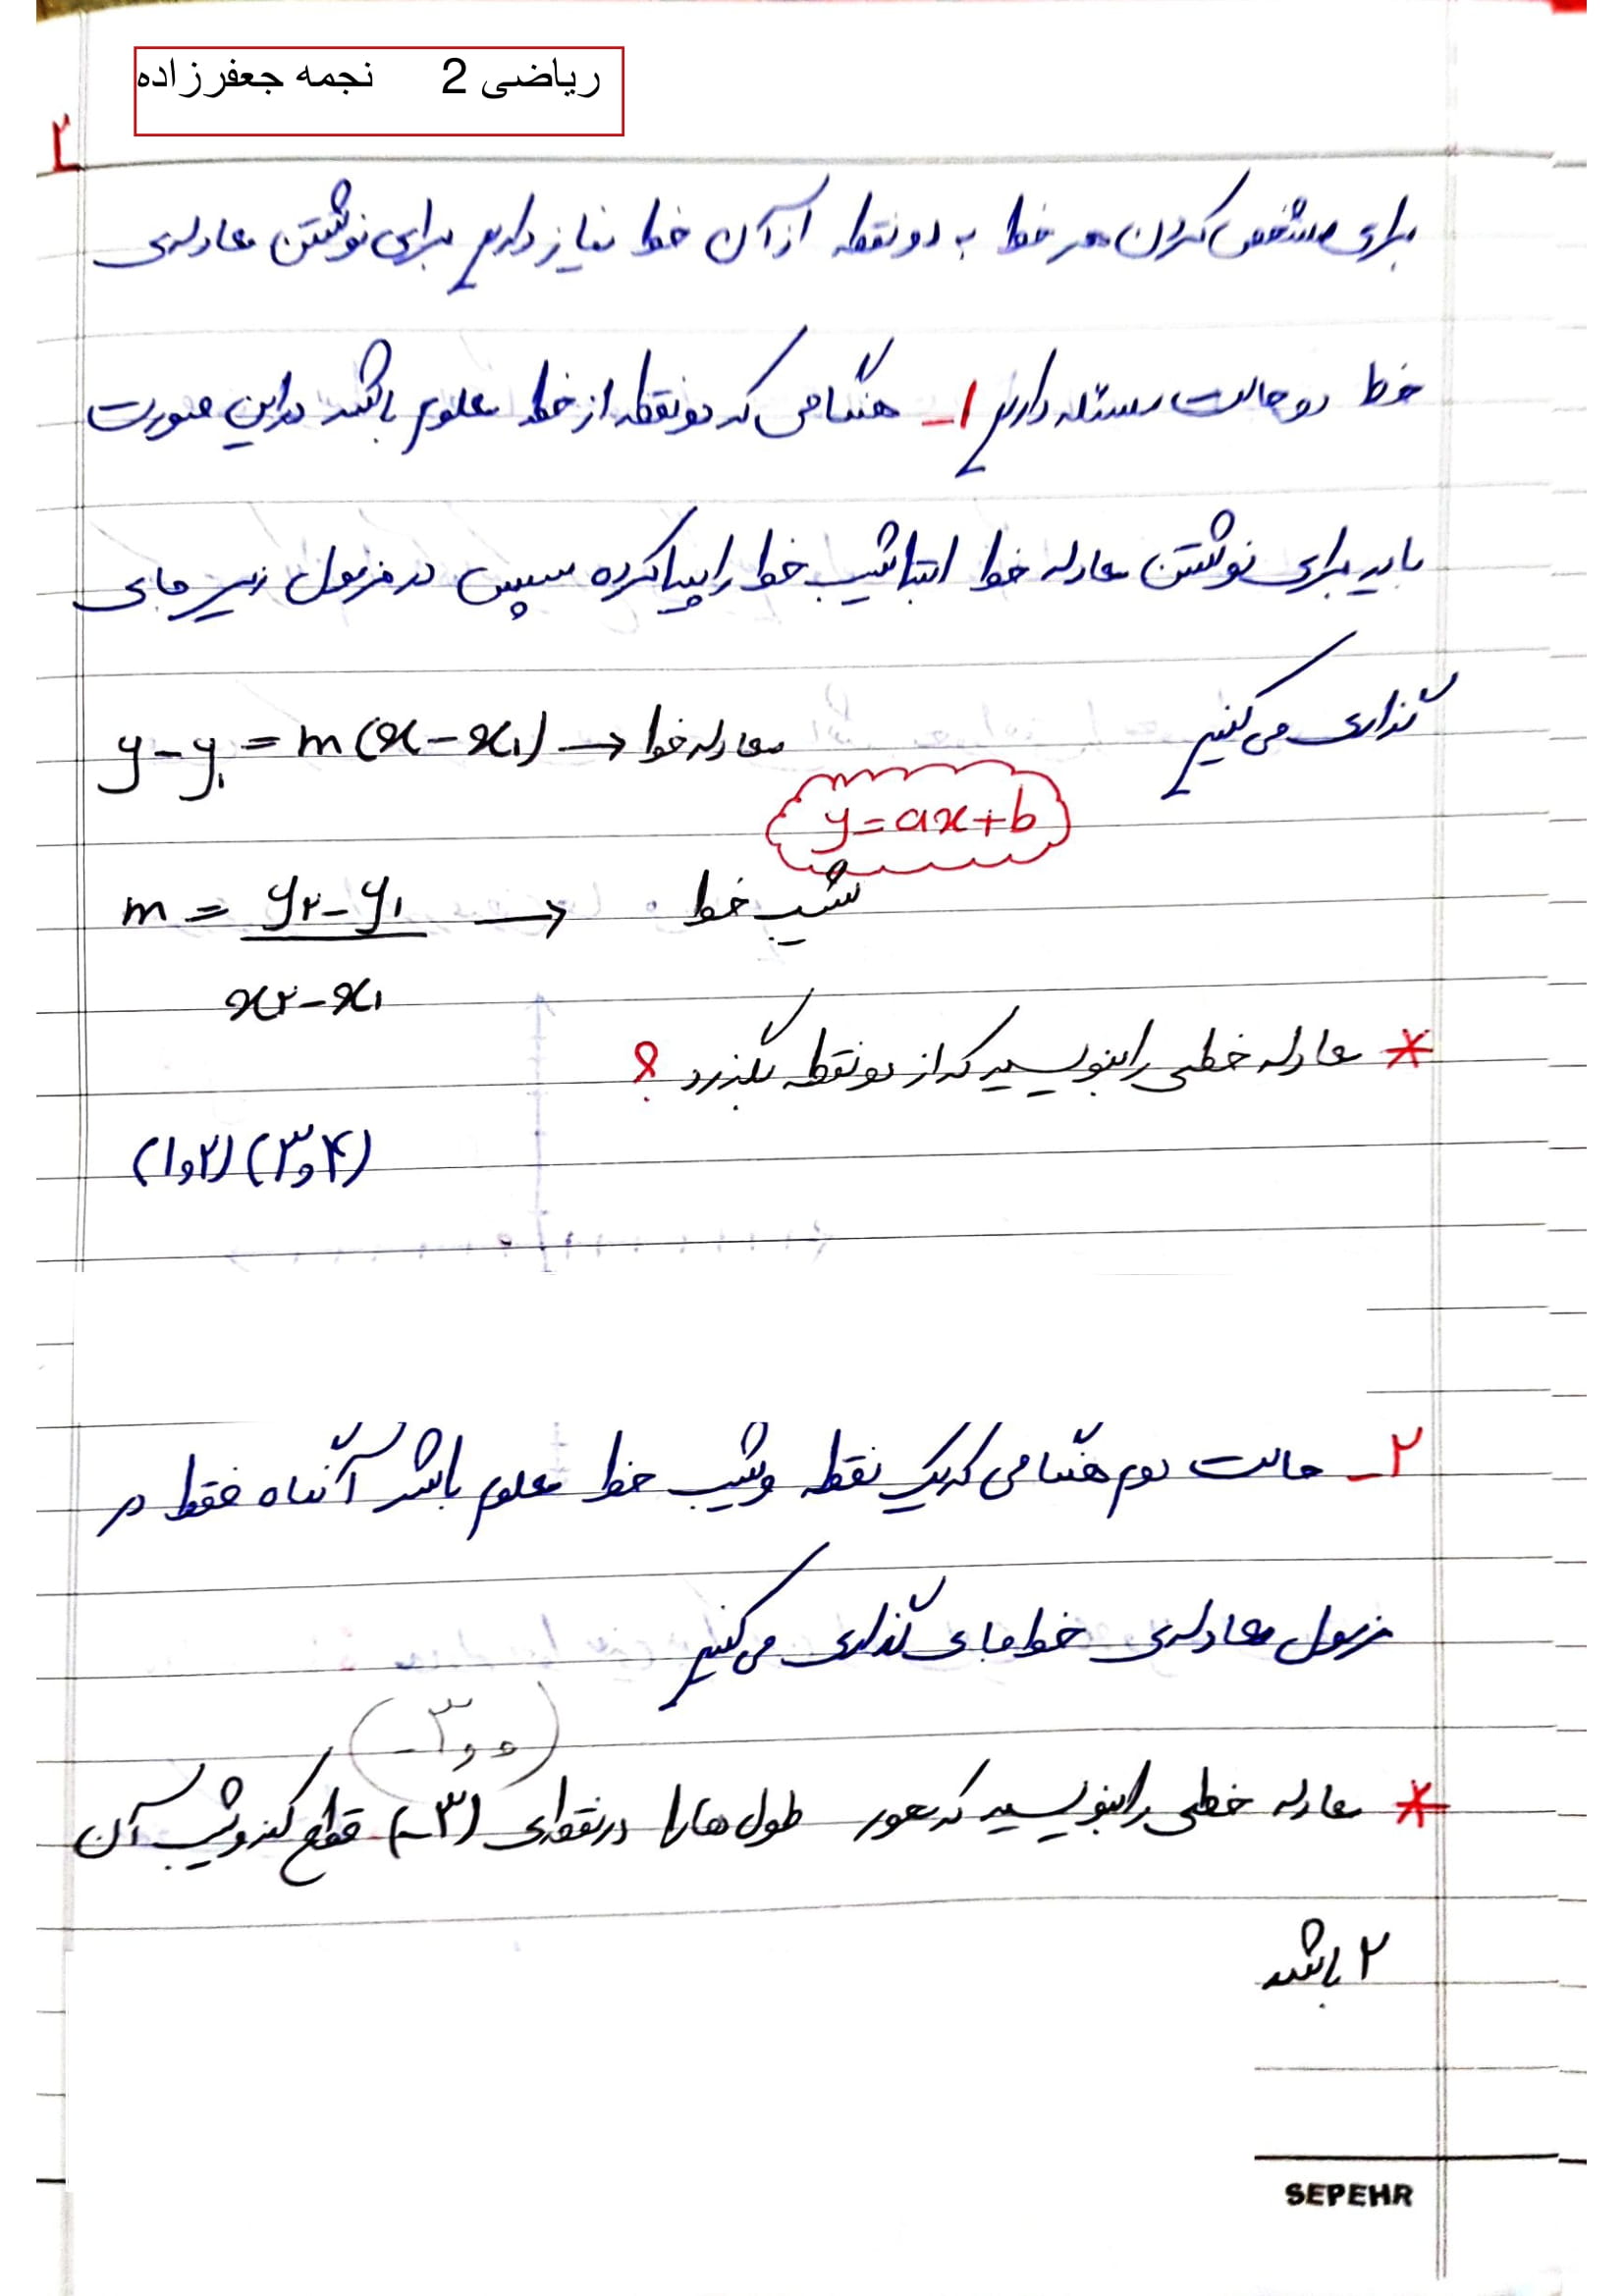 ریاضی 2 نجمه جعفرزاده
۲
برای مشخص کردن هر خط به دو نقطه از آن خط نیاز داریم برای نوشتن معادله‌ی
خط دو حالت مسئله داریم ۱- هنگامی که دو نقطه از خط معلوم باشد در این صورت
باید برای نوشتن معادله خط ابتدا شیب خط را پیدا کرده سپس در فرمول زیر جای
گذاری می کنیم
y-y₁ = m(x-x₁) → معادله خط
y=ax+b
m = (y₂-y₁)/(x₂-x₁) → شیب خط
* معادله خطی را بنویسید که از دو نقطه بگذرد ؟
(۱,۲) (۳,۴)
۲- حالت دوم هنگامی که یک نقطه و شیب خط معلوم باشد آنگاه فقط در
فرمول معادله‌ی خط جای گذاری می کنیم
(-۳,۰)
* معادله خطی را بنویسید که محور طول ها را در نقطه‌ی (-۳) قطع کند و شیب آن
۲ باشد
SEPEHR